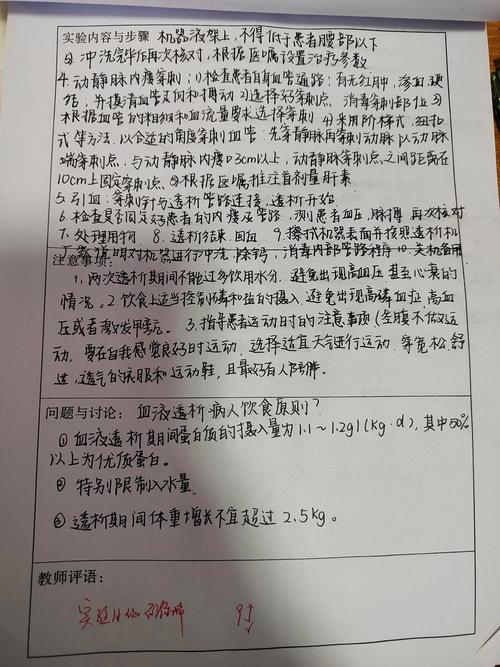 实验内容与步骤 机器液架上，不得低于患者腰部以下
③ 冲洗完毕后再次核对，根据医嘱设置治疗参数
4. 动静脉内瘘穿刺：1)检查患者自身血管通路：有无红肿，渗血，硬
结；并摸清血管走向和搏动 2)选择好穿刺点，消毒穿刺部位 3)
根据血管的粗细和血流量要求选择穿刺 4)采用阶梯式，纽扣
式等方法，以合适的角度穿刺血管：先穿静脉再穿刺动脉，以动脉
端穿刺点，与动静脉内瘘口3cm以上，动静脉穿刺点之间距离在
10cm上固定穿刺点 ⑤根据医嘱推注首剂量肝素
5. 引血：穿刺针与透析管路连接，透析开始
6. 检查是否固定好患者的内瘘及管路，测患者血压，脉搏 再次核对
7. 处理用物 8. 透析结束，回血 9. 擦拭机器表面并按照透析机
说明对机器进行冲洗、除钙，消毒内部管路程序 10. 关机备用
注意事项：
1，两次透析期间不能过多饮用水分，避免出现高血压甚至心衰的
情况。2. 饮食上适当控制磷和盐的摄入，避免出现高磷血症，高血
压或者激发甲旁亢。3. 指导患者运动时的注意事项（空腹不做运
动，要在自我感觉良好时运动，选择适宜天气进行运动，穿宽松，舒
适，透气的衣服和运动鞋，且最好有人陪伴。
问题与讨论：血液透析病人饮食原则？
① 血液透析期间蛋白质的摄入量为1.1～1.2g/(kg·d)，其中50%
以上为优质蛋白。
② 特别限制入水量
③ 透析期间体重增长不宜超过2.5kg。
教师评语：